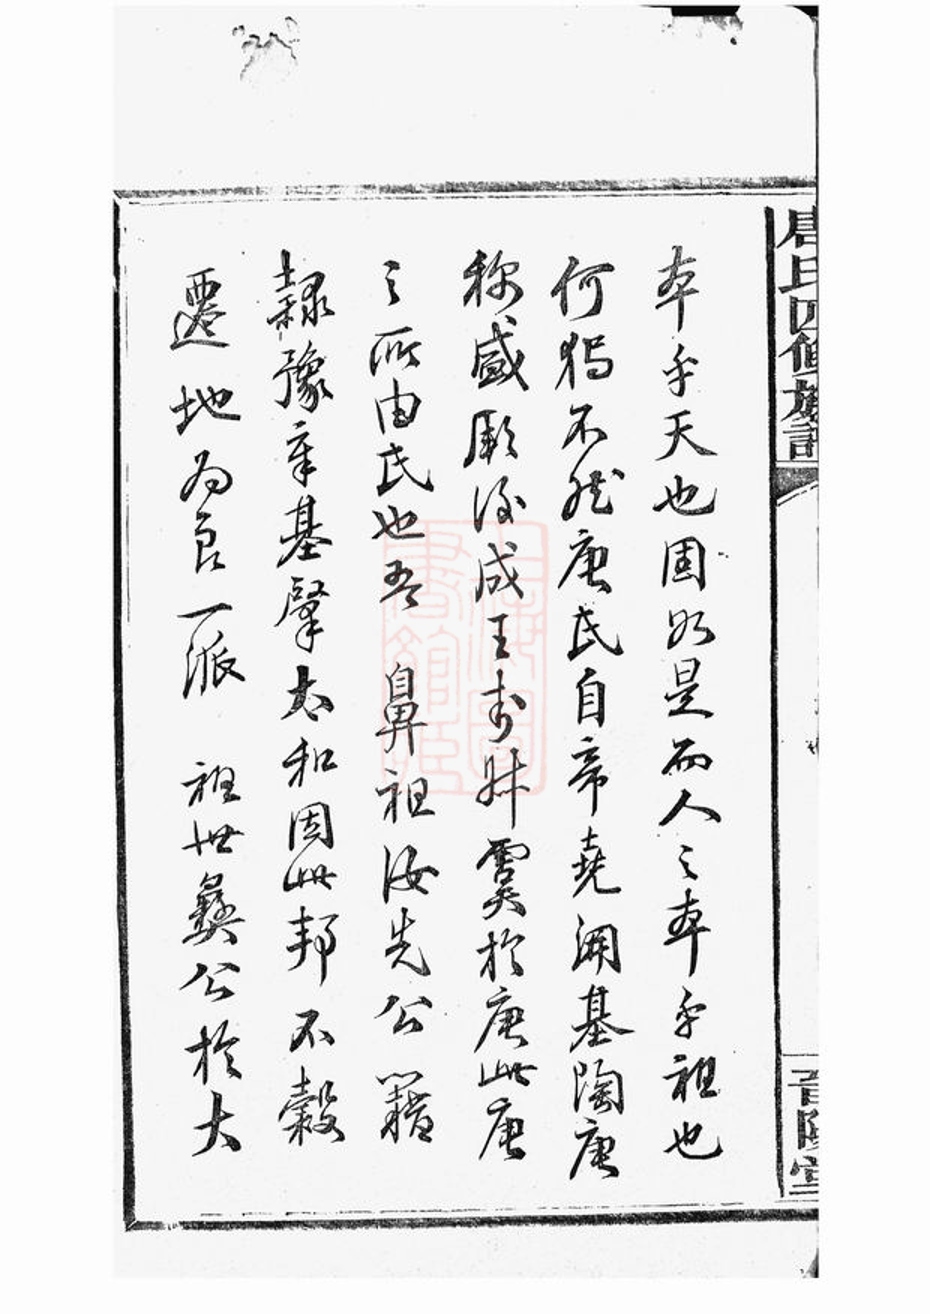 唐氏四修族譜
晉陽堂
本乎天也固如是而人之本乎祖也
何獨不然唐氏自帝堯開基陶唐
稱盛厥後成王封叔虞於唐此唐
之所由氏也吾 鼻祖汝先公籍
隸豫章基肇太和因此邦不穀
遷地為良一派 祖世彝公於大